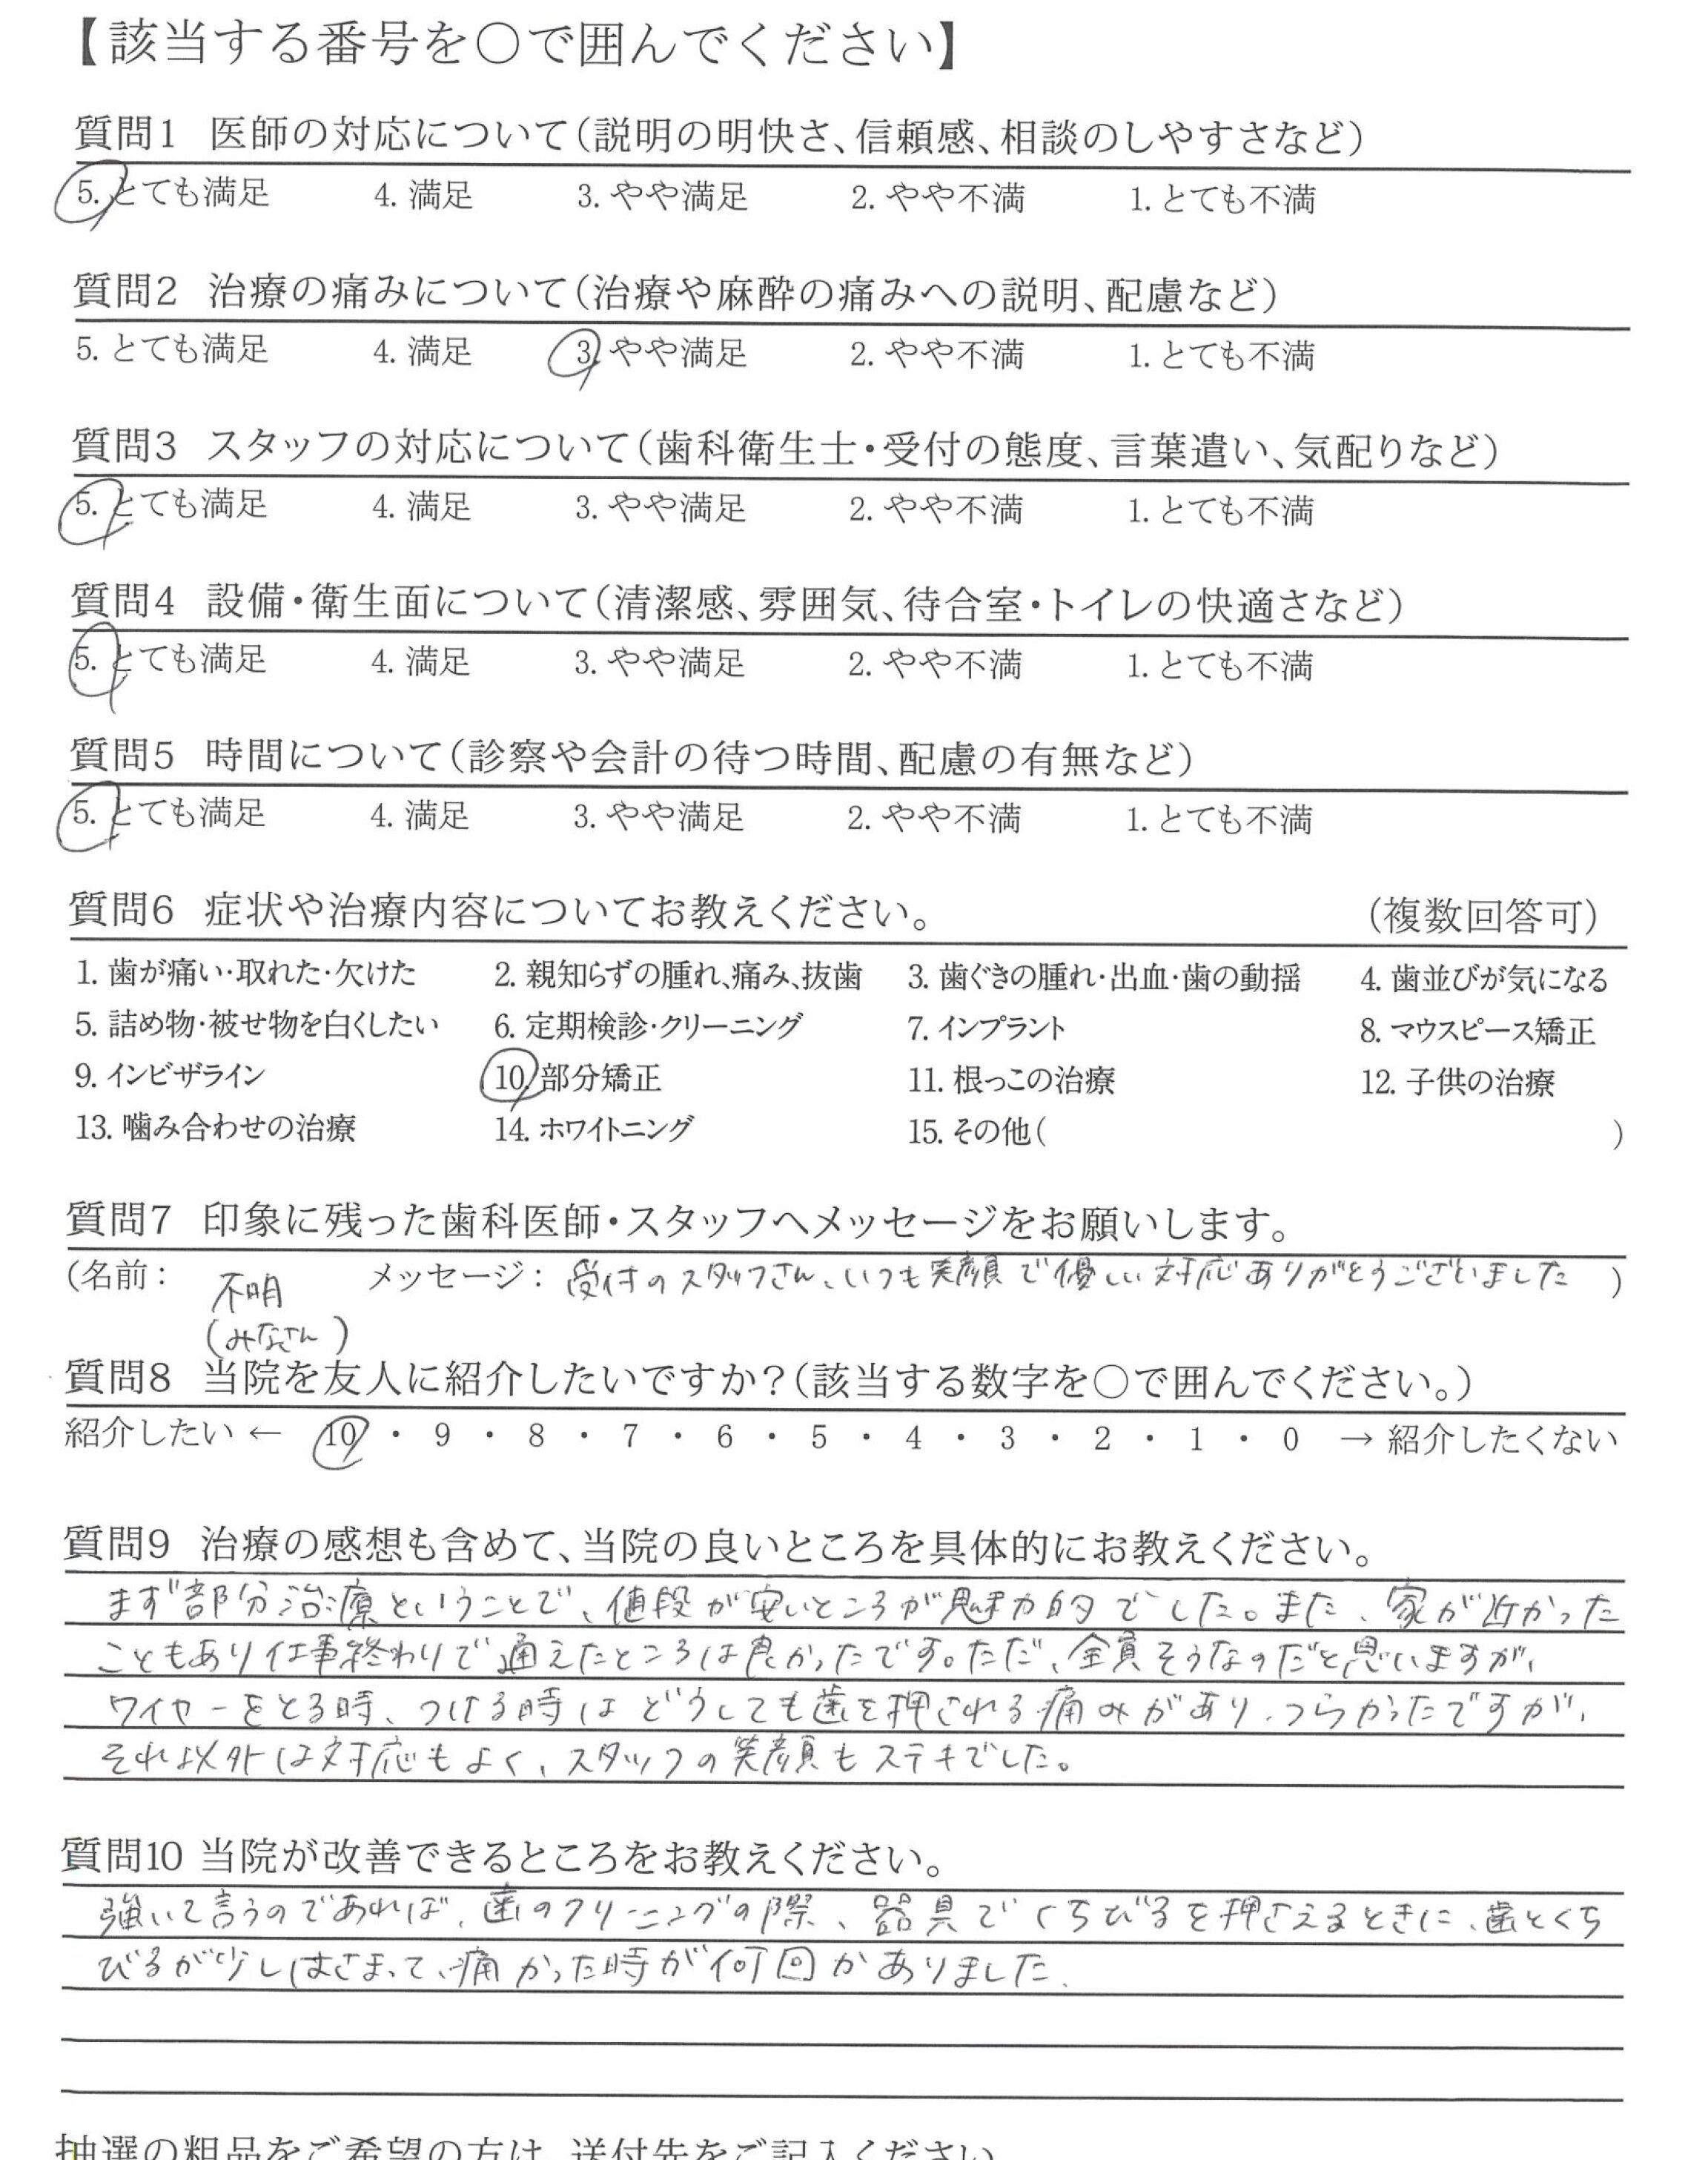 【該当する番号を〇で囲んでください】
質問1 医師の対応について（説明の明快さ、信頼感、相談のしやすさなど）
5. とても満足 4. 満足 3. やや満足 2. やや不満 1. とても不満
質問2 治療の痛みについて（治療や麻酔の痛みへの説明、配慮など）
5. とても満足 4. 満足 3. やや満足 2. やや不満 1. とても不満
質問3 スタッフの対応について（歯科衛生士・受付の態度、言葉遣い、気配りなど）
5. とても満足 4. 満足 3. やや満足 2. やや不満 1. とても不満
質問4 設備・衛生面について（清潔感、雰囲気、待合室・トイレの快適さなど）
5. とても満足 4. 満足 3. やや満足 2. やや不満 1. とても不満
質問5 時間について（診察や会計の待つ時間、配慮の有無など）
5. とても満足 4. 満足 3. やや満足 2. やや不満 1. とても不満
質問6 症状や治療内容についてお教えください。 （複数回答可）
1. 歯が痛い・取れた・欠けた 2. 親知らずの腫れ、痛み、抜歯 3. 歯ぐきの腫れ・出血・歯の動揺 4. 歯並びが気になる
5. 詰め物・被せ物を白くしたい 6. 定期検診・クリーニング 7. インプラント 8. マウスピース矯正
9. インビザライン 10. 部分矯正 11. 根っこの治療 12. 子供の治療
13. 噛み合わせの治療 14. ホワイトニング 15. その他（ ）
質問7 印象に残った歯科医師・スタッフへメッセージをお願いします。
（名前： 不明 メッセージ：受付のスタッフさん、いつも笑顔で優しい対応ありがとうございました ）
（みなさん）
質問8 当院を友人に紹介したいですか？（該当する数字を〇で囲んでください。）
紹介したい ← 10 ・ 9 ・ 8 ・ 7 ・ 6 ・ 5 ・ 4 ・ 3 ・ 2 ・ 1 ・ 0 → 紹介したくない
質問9 治療の感想も含めて、当院の良いところを具体的にお教えください。
まず部分治療ということで、値段が安いところが魅力的でした。また、家が近かった
こともあり仕事終わりで通えたところは良かったです。ただ、全員そうなのだと思いますが、
ワイヤーをとる時、つける時はどうしても歯を押される痛みがあり、つらかったですが、
それ以外は対応もよく、スタッフの笑顔もステキでした。
質問10 当院が改善できるところをお教えください。
強いて言うのであれば、歯のクリーニングの際、器具でくちびるを押さえるときに、歯とくち
びるが少しはさまって、痛かった時が何回かありました。
抽選の粗品をご希望の方は、送付先をご記入ください